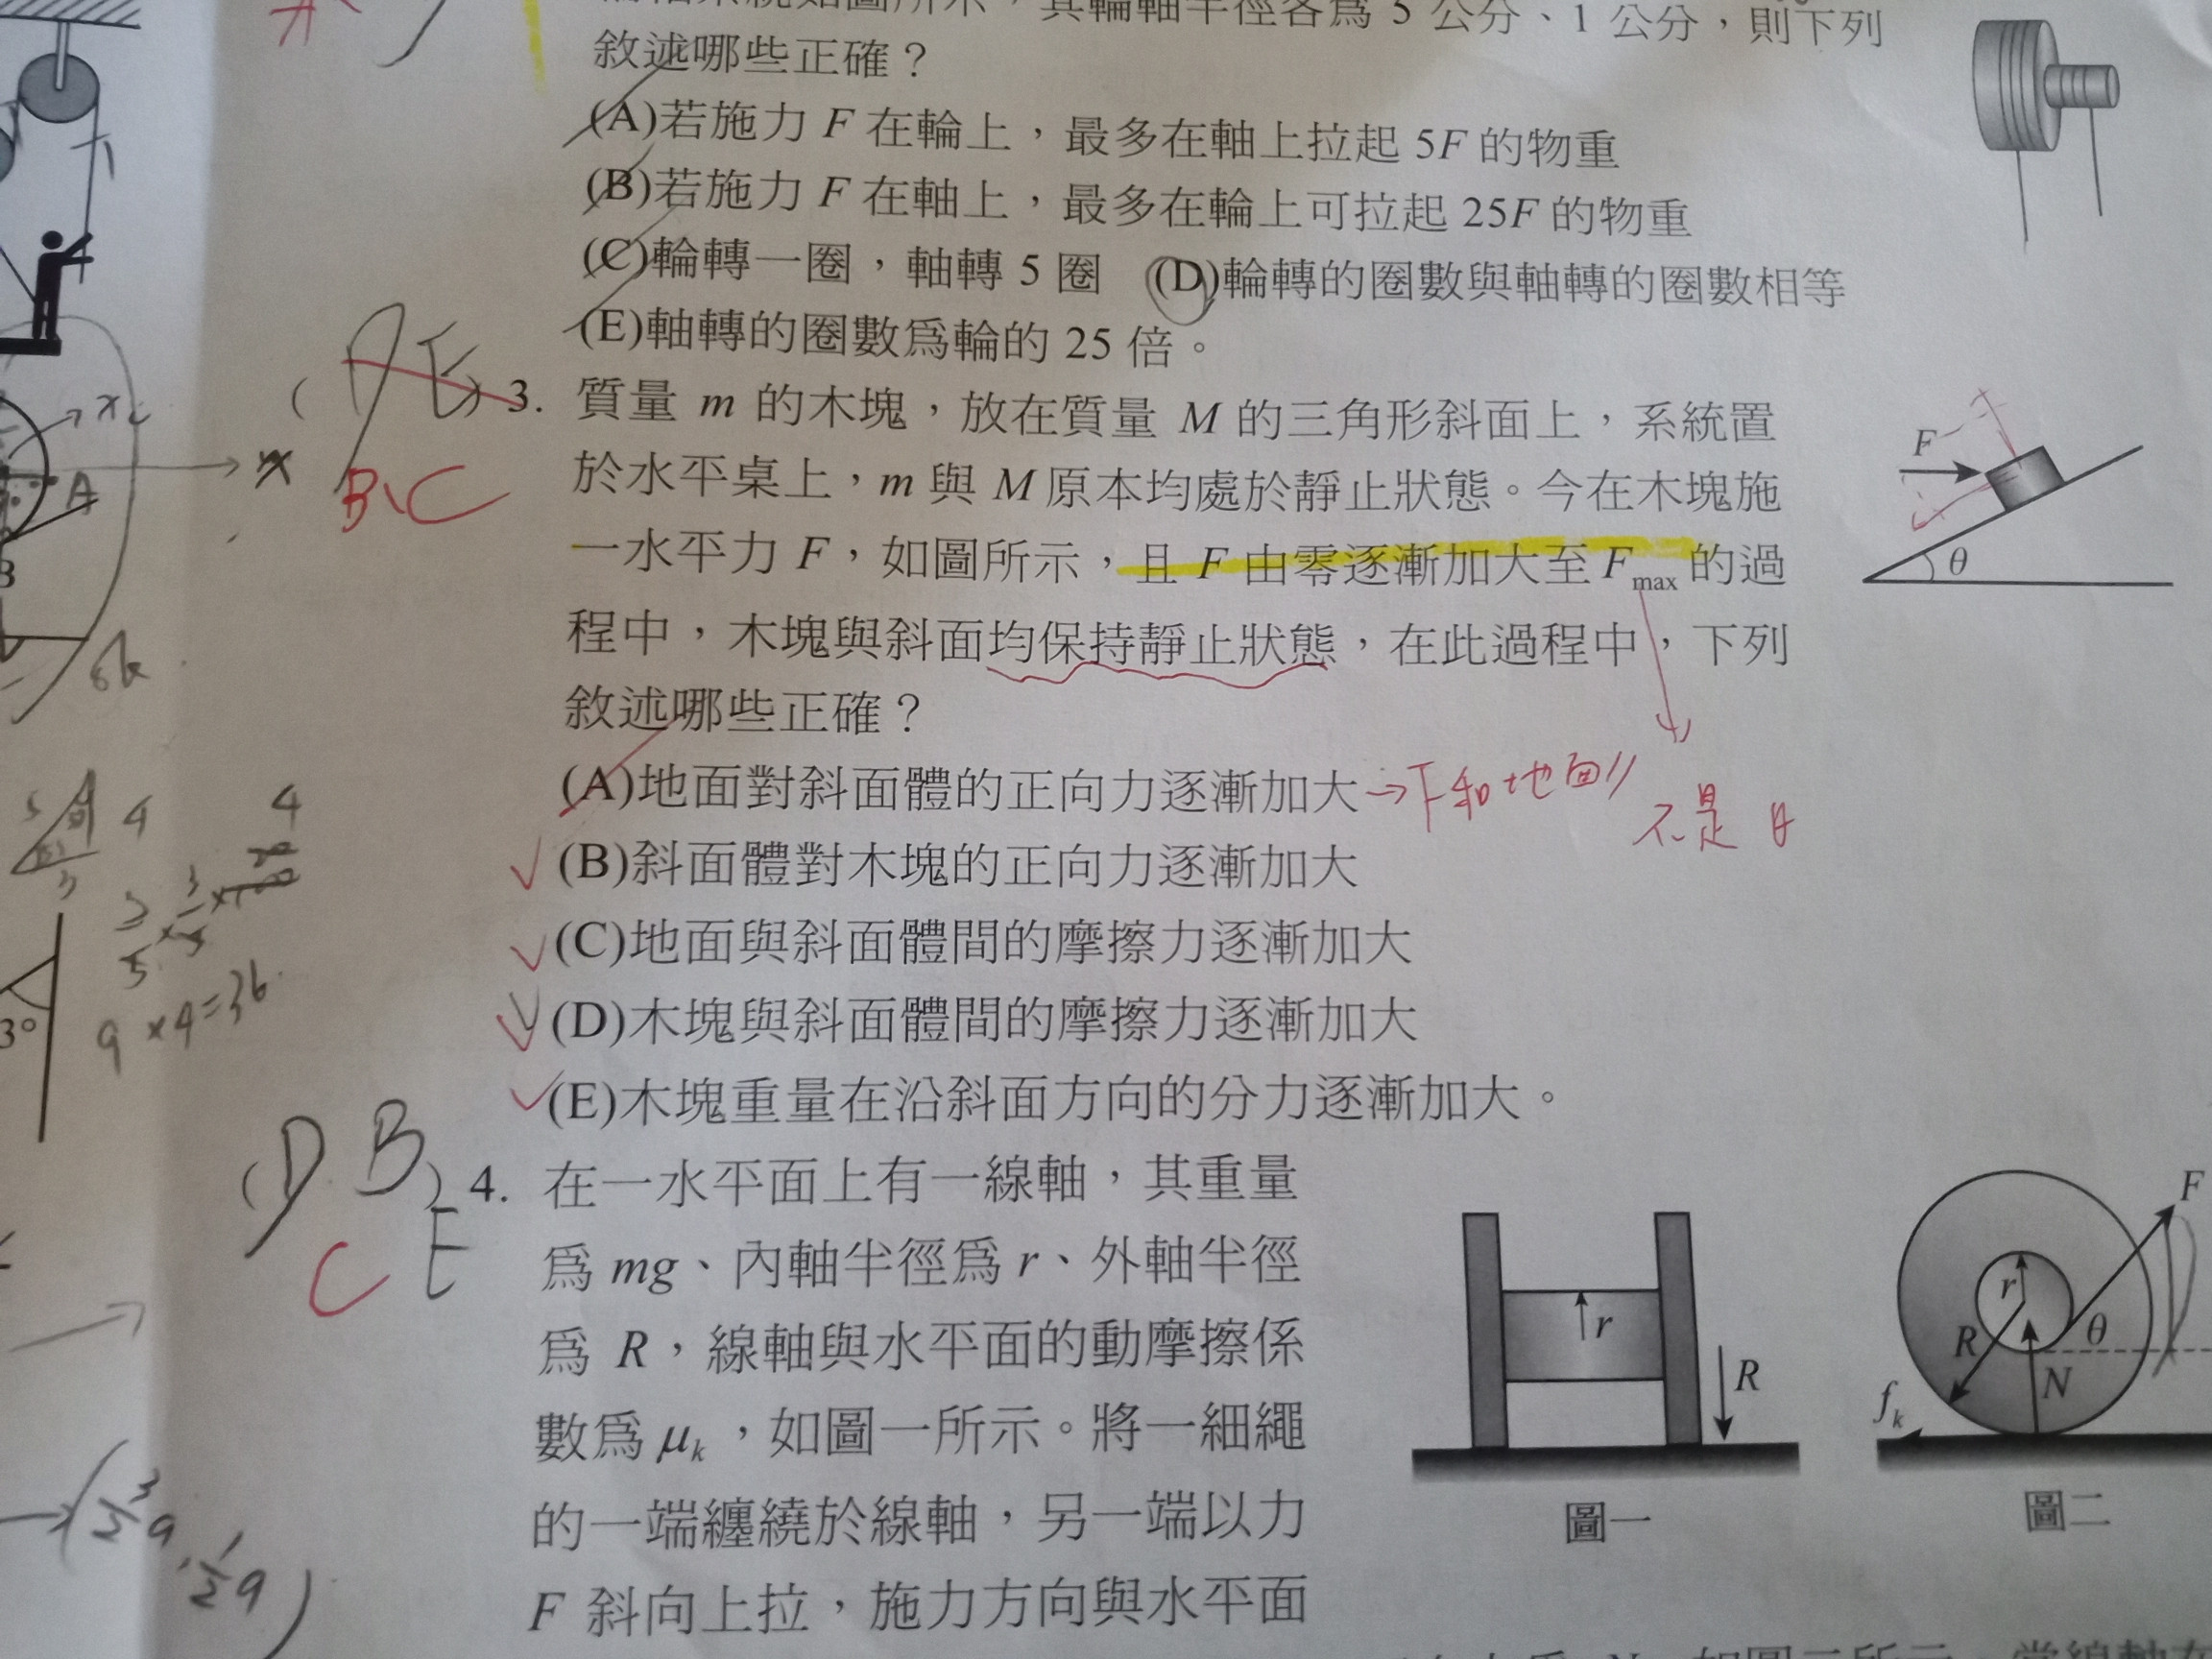 輪軸半徑各為 5 公分、1 公分，則下列
敘述哪些正確？
(A)若施力 F 在輪上，最多在軸上拉起 5F 的物重
(B)若施力 F 在軸上，最多在輪上可拉起 25F 的物重
(C)輪轉一圈，軸轉 5 圈 (D)輪轉的圈數與軸轉的圈數相等
(E)軸轉的圈數為輪的 25 倍。
( DE ) 3. 質量 m 的木塊，放在質量 M 的三角形斜面上，系統置
BC
於水平桌上，m 與 M 原本均處於靜止狀態。今在木塊施
一水平力 F，如圖所示，且 F 由零逐漸加大至 Fmax 的過
程中，木塊與斜面均保持靜止狀態，在此過程中，下列
敘述哪些正確？
(A)地面對斜面體的正向力逐漸加大 →F和地面//
不是
(B)斜面體對木塊的正向力逐漸加大
(C)地面與斜面體間的摩擦力逐漸加大
(D)木塊與斜面體間的摩擦力逐漸加大
(E)木塊重量在沿斜面方向的分力逐漸加大。
F
θ
( DB ) 4. 在一水平面上有一線軸，其重量
C E
為 mg、內軸半徑為 r、外軸半徑
為 R，線軸與水平面的動摩擦係
數為 μk，如圖一所示。將一細繩
的一端纏繞於線軸，另一端以力
F 斜向上拉，施力方向與水平面
r
R
圖一
F
r
θ
R
N
fk
圖二
A
4
4
9×4=36
3°